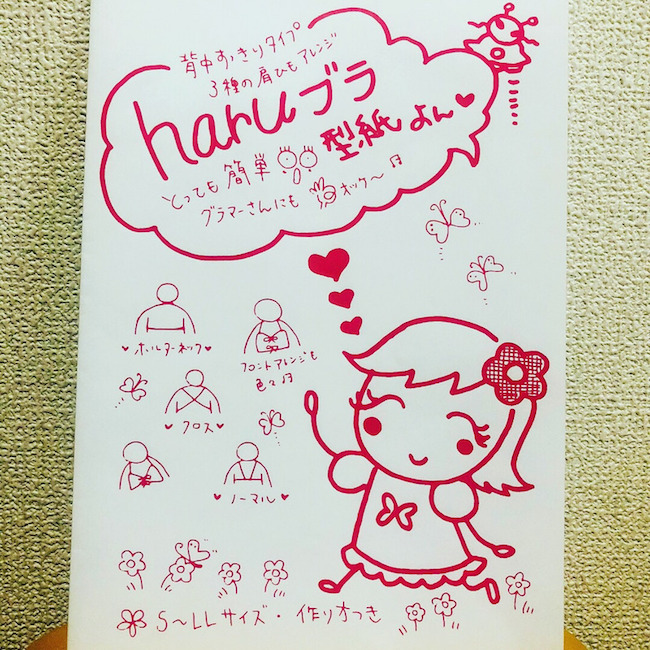 背中すっきりタイプ
3種の肩ひもアレンジ
haruブラ
型紙よん♥
とっても簡単
グラマーさんにもオッケ〜♪
♥ホルターネック♥
フロントアレンジも
色々♪
♥クロス♥
♥ノーマル♥
S〜LLサイズ・作り方つき